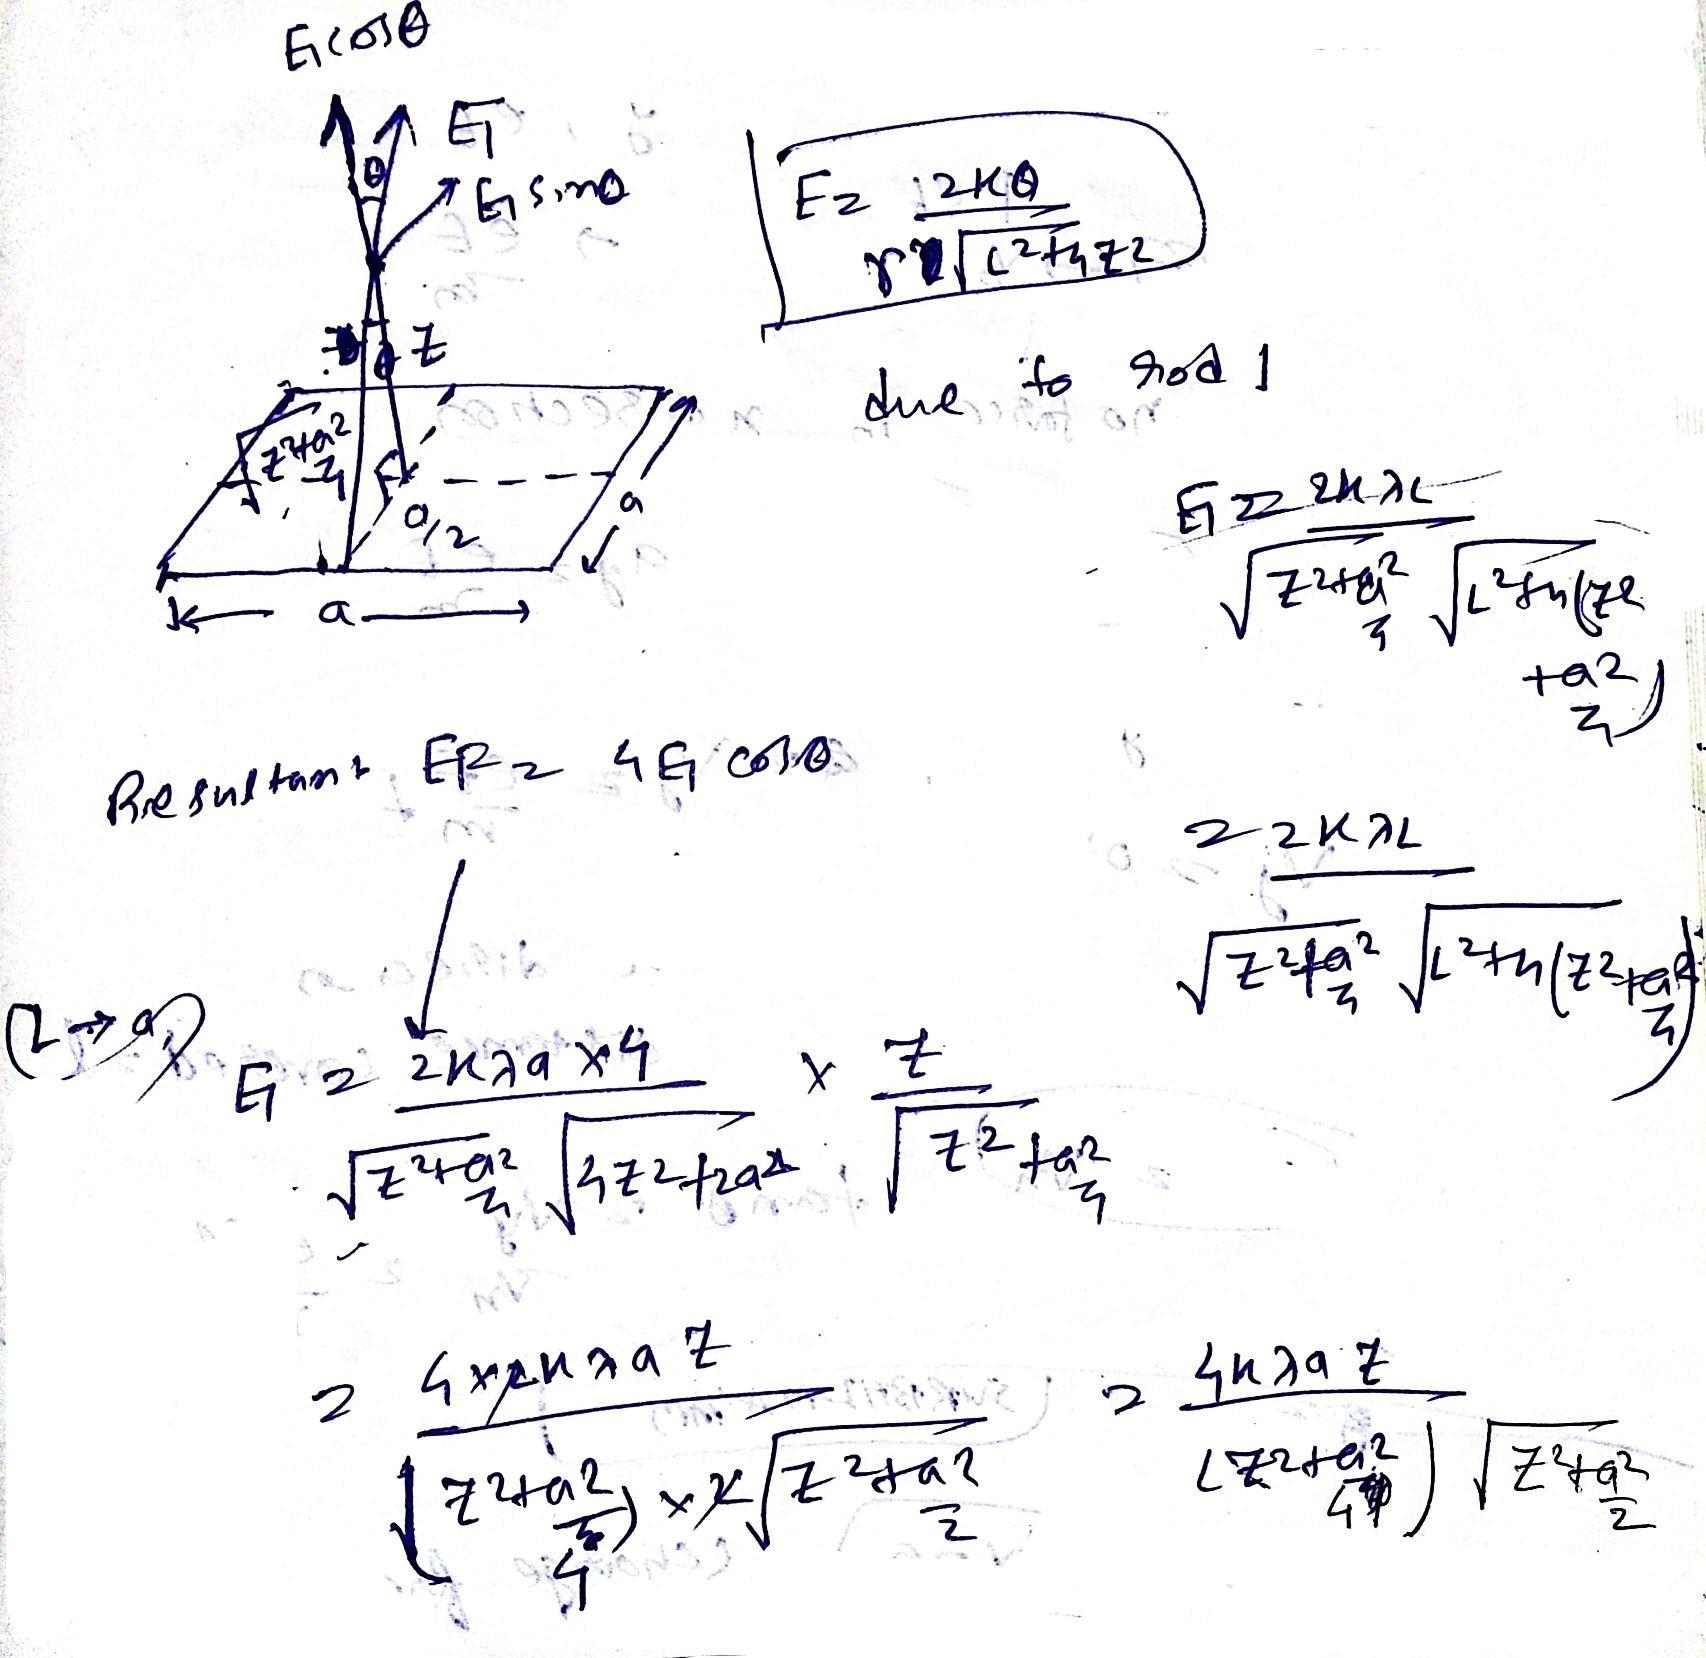 E₁cosθ
E₁
θ
E₁sinθ
E = 2KQ / r√(L²+4z²)
due to rod 1
θ z
z²+a²/4
a/2
a
a
E₁ = 2KλL / √(z²+a²/4) √(L²+4(z²+a²/4))
Resultant ER = 4E₁ cosθ
= 2KλL / √(z²+a²/4) √(L²+4(z²+a²/4))
(L→a)
E₁ = 2Kλa×4 / √(z²+a²/4) √(4z²+2a²) × z / √(z²+a²/4)
= 4×2Kλaz / (z²+a²/4)×2√(z²+a²/2) = 4Kλaz / (z²+a²/4) √(z²+a²/2)